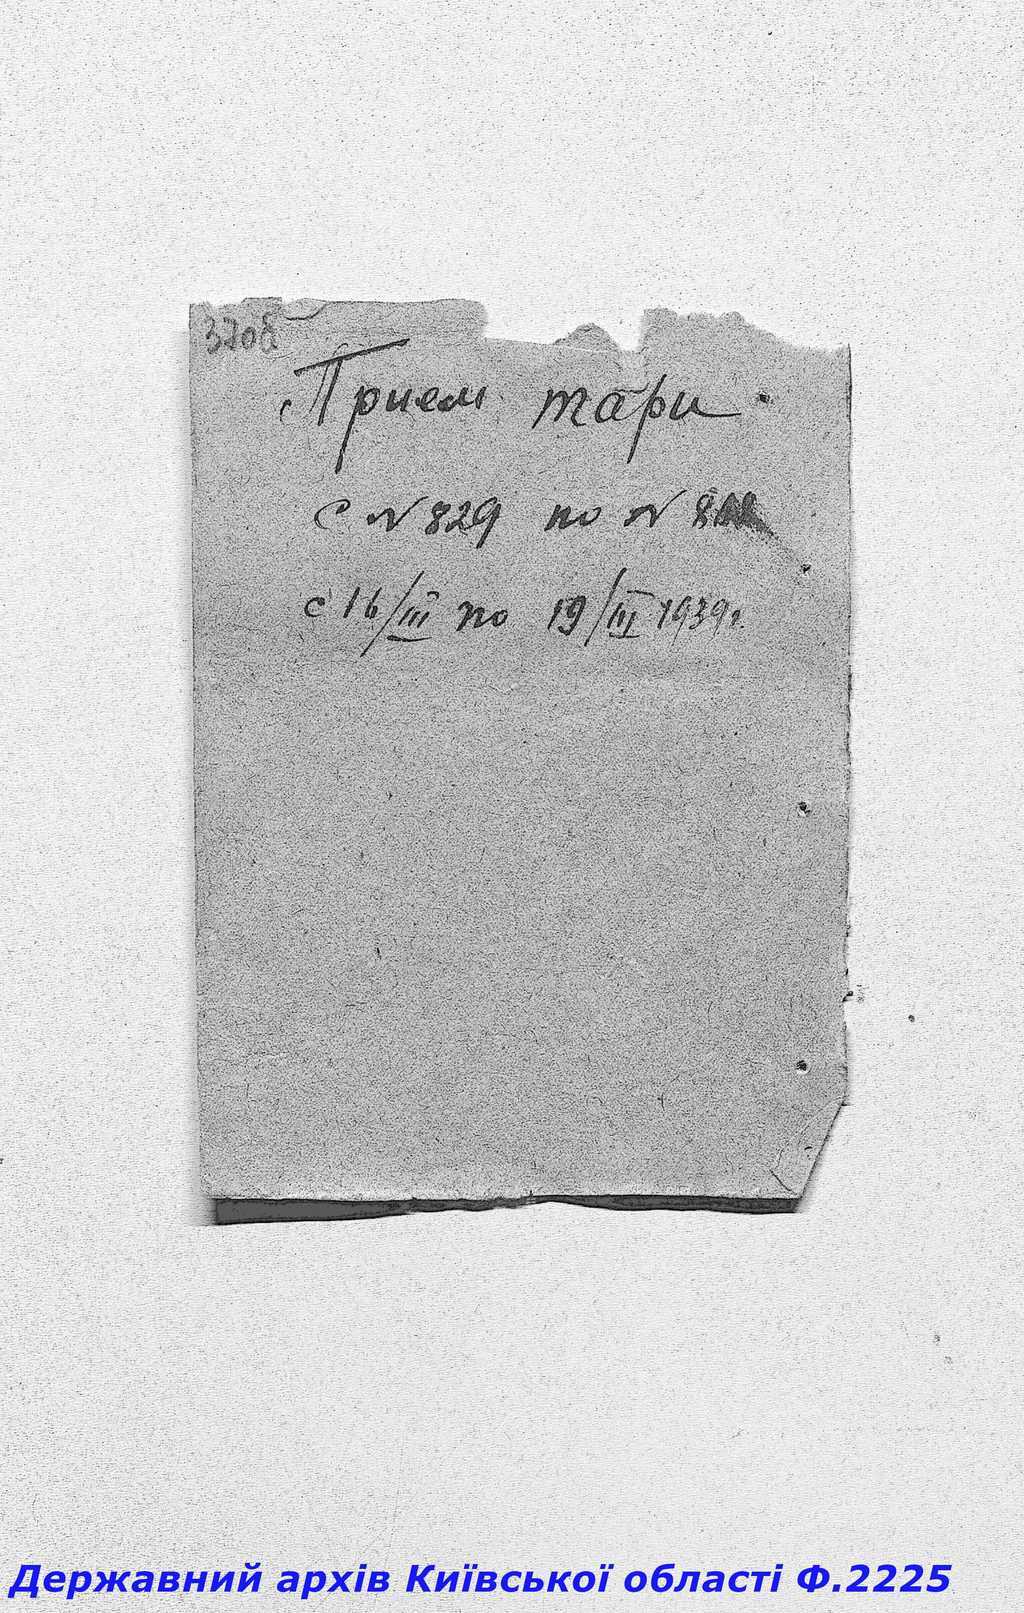 370б
Прием тари
с N 829 по N
с 16/III по 19/III 1939г.
Державний архів Київської області Ф.2225